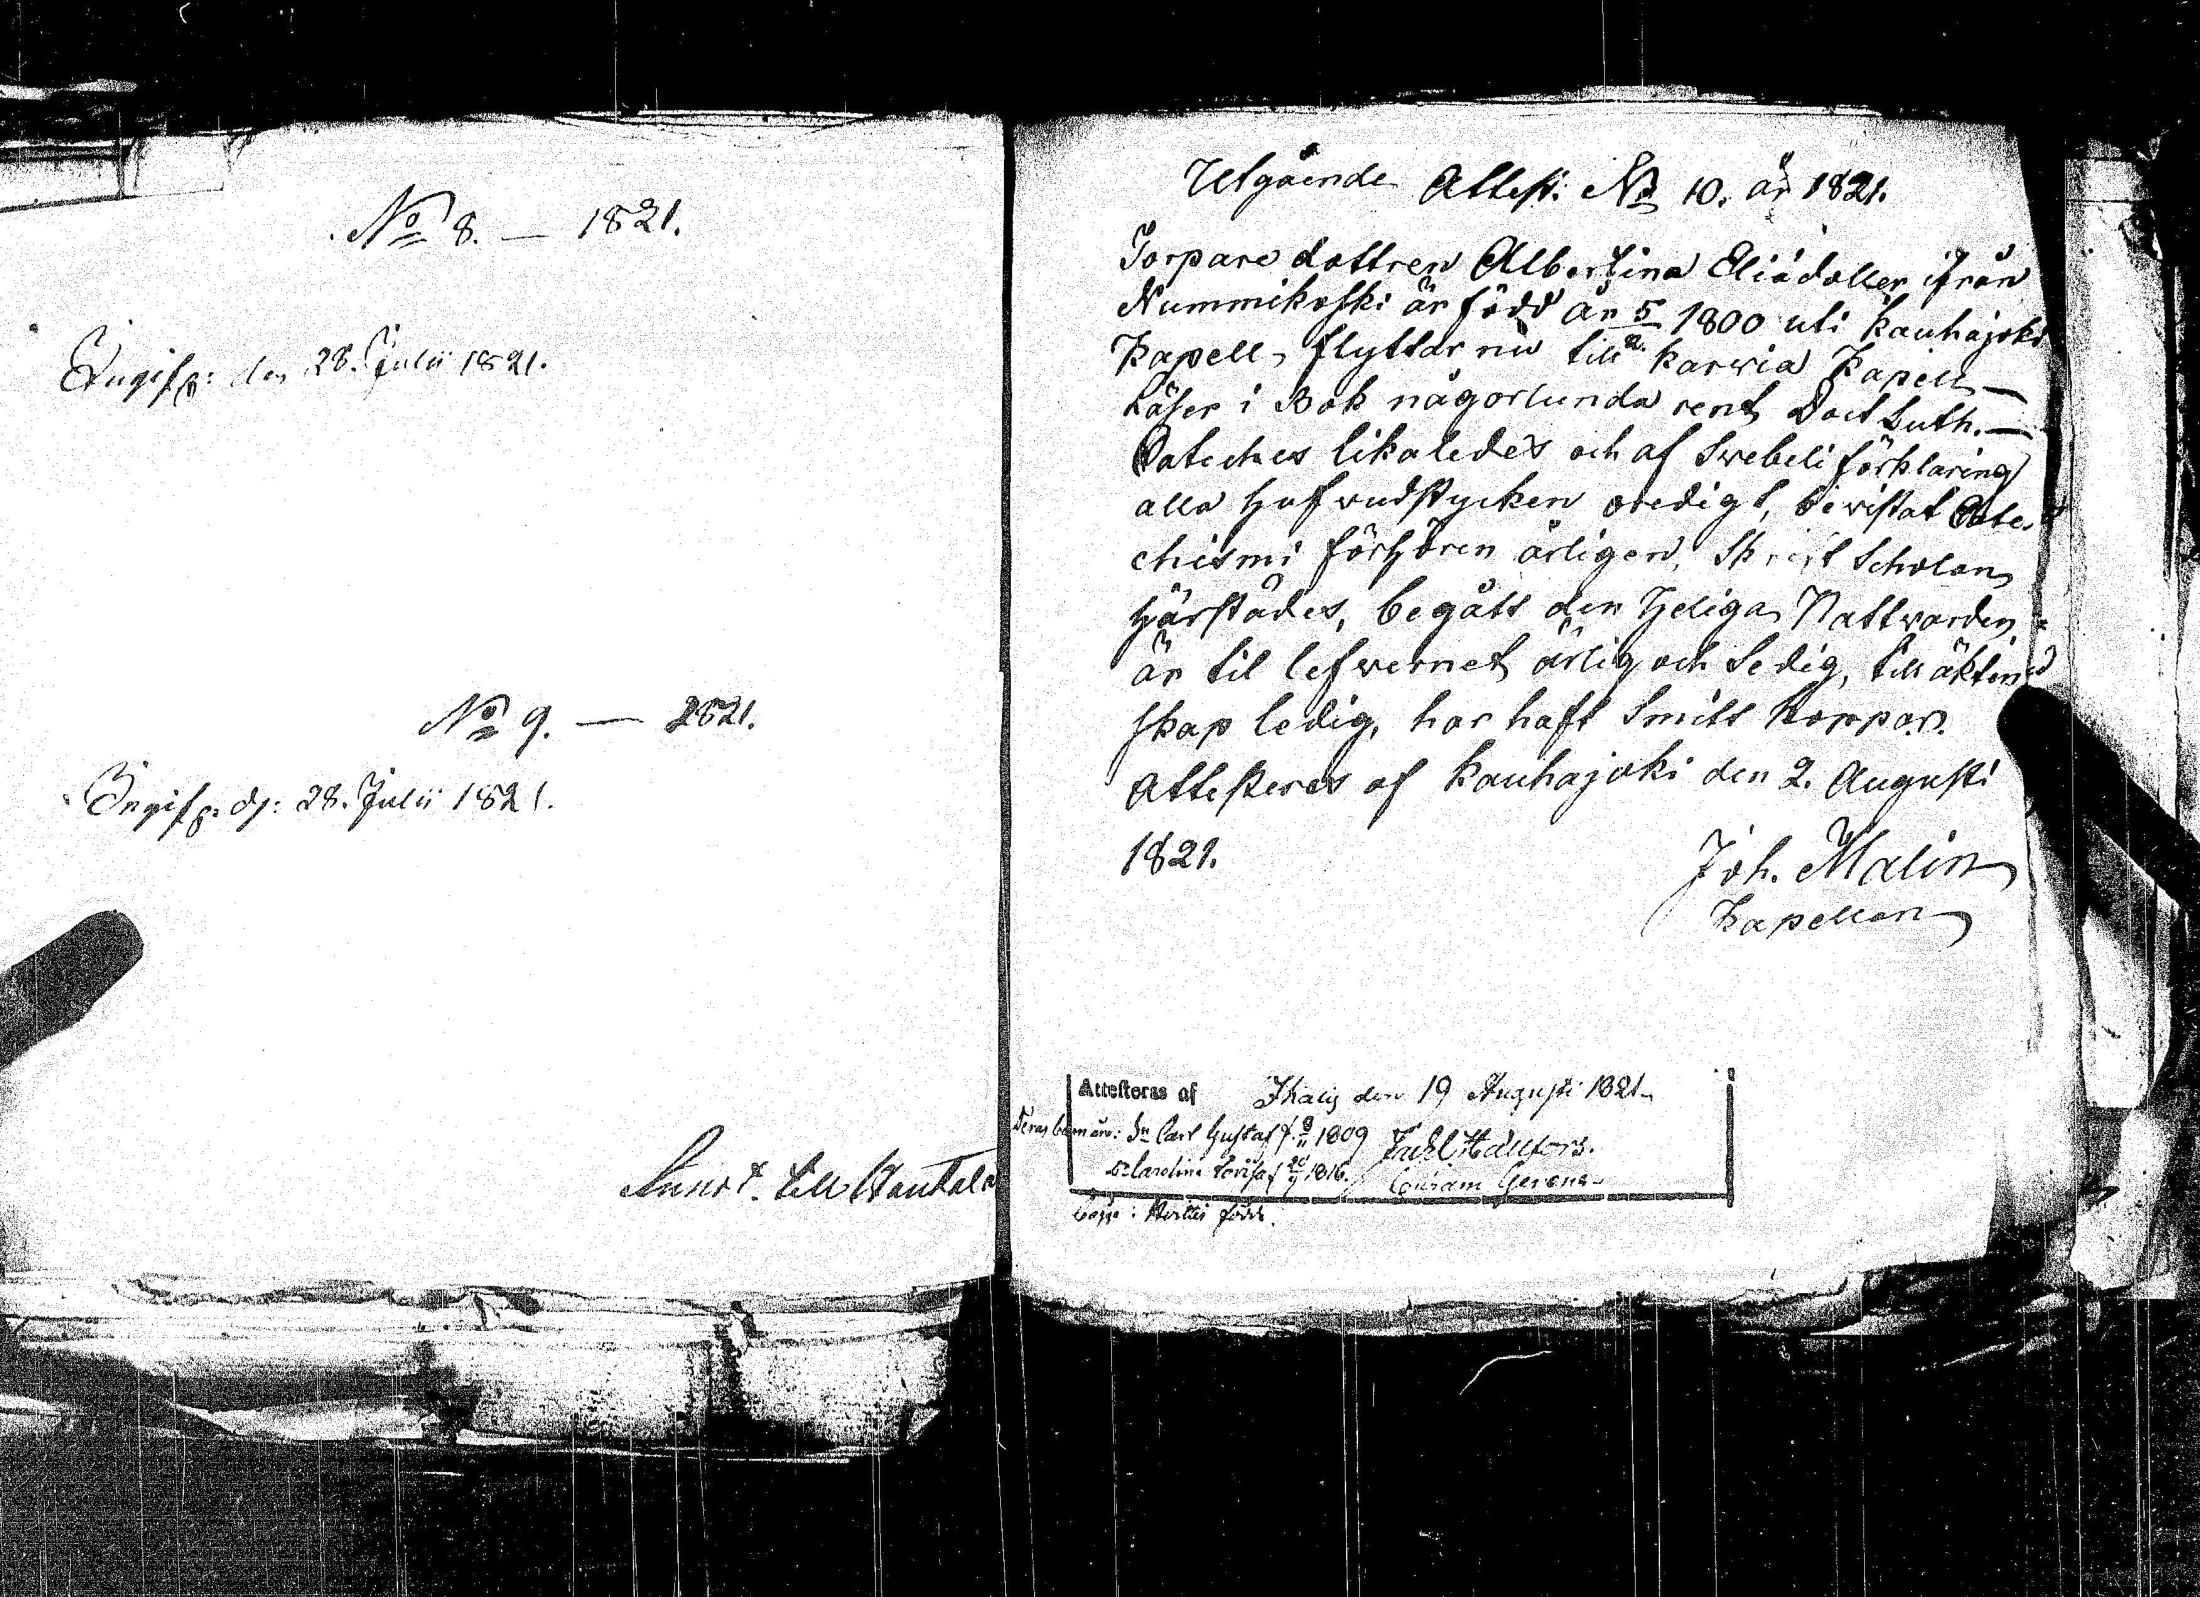 No 8. — 1821.
Ingifv: den 28. Julii 1821.
No 9. — 1821.
Ingifv: d: 28. Julii 1821.
till Hautala
Utgående Attest: No 10. år 1821.
Torpare dottren Albertina Eliædotter ifrån
Nummikoski är född år 5/2 1800 uti Kauhajoki
Kapell, flyttar nu till Karvia Kapell —
Läser i Bok någorlunda rent Doct Luth. —
Cateches likaledes och af Swebeli förklaring
alla hufwudstycken redigt, bewistat Cate-
chismi förhören årligen, Skrift Scholan
härstädes, begått den heliga Nattwarden,
är til lefwernet ärlig och sedig, till äkten
skap ledig, har haft Smitt koppor.
Attesteras af Kauhajoki den 2. Augusti
1821.
Joh. Malin
Kapellan
Attesteras af Ikalis den 19 Augusti 1821
Deras barn äro: Sn Carl Gustaf f. 9/11 1809
Dr Carolina Lovisa f 1816.
födde.